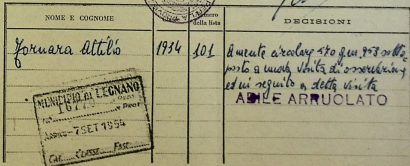 NOME E COGNOME
Numero
della lista
DECISIONI
Fornara Attilio
1934
101
A mente circolare 570 g.m. 953 sotto
posto a nuova visita di osservazione
ed in seguito a detta visita
ABILE ARRUOLATO
MUNICIPIO DI LEGNANO
Prot.
7 SET 1954
Cat. Classe Fasc.